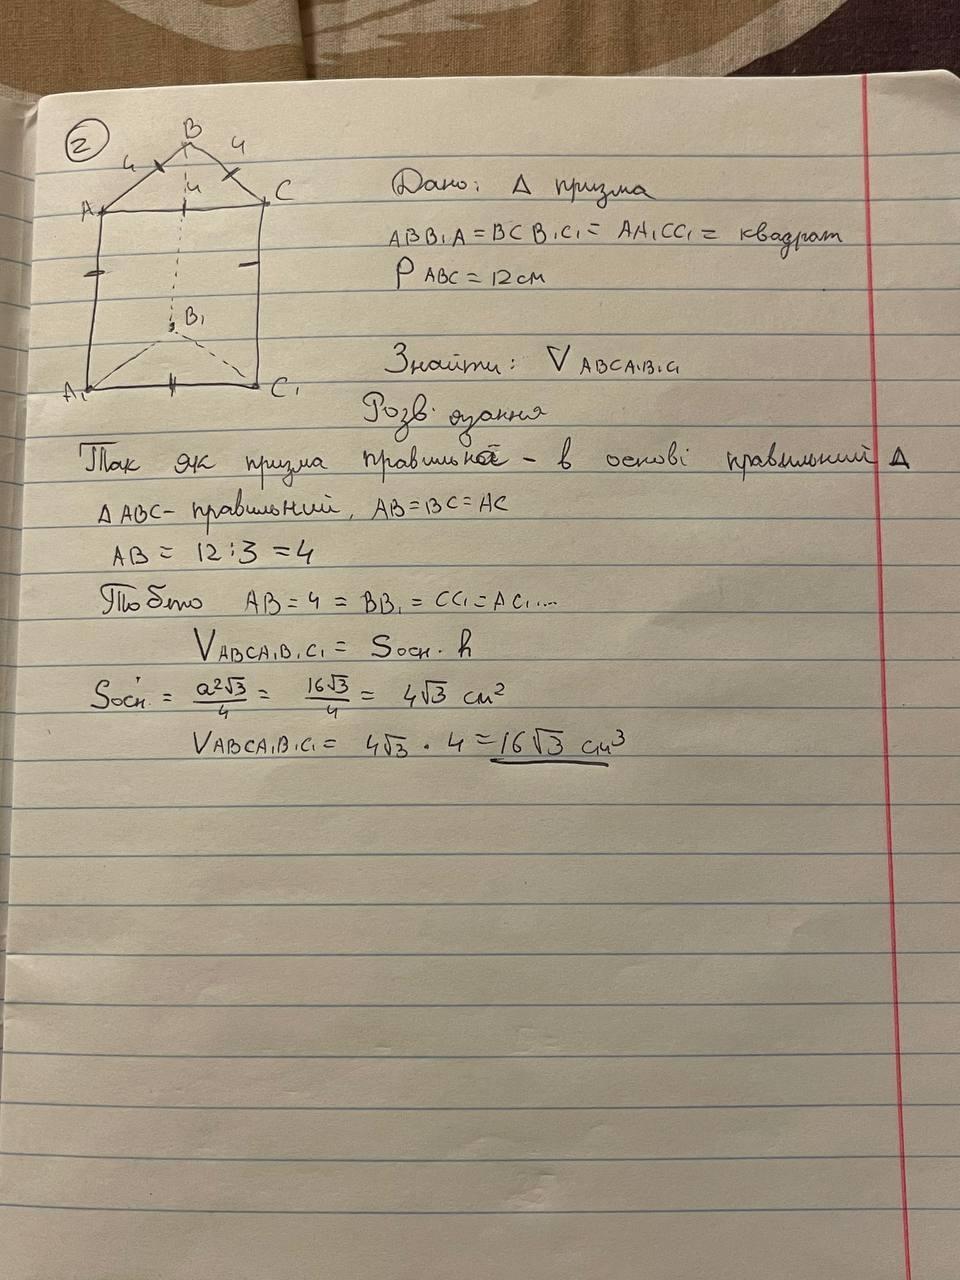 2
B
4 4
4
A C
B₁
A₁ C₁
Дано: Δ призма
ABB₁A = BCB₁C₁ = AA₁CC₁ = квадрат
P ABC = 12 см
Знайти: V ABCA₁B₁C₁
Розв'язання
Так як призма правильна - в основі правильний Δ
Δ ABC - правильний, AB = BC = AC
AB = 12 : 3 = 4
Тобто AB = 4 = BB₁ = CC₁ = AC₁...
V ABCA₁B₁C₁ = Sосн. · h
Sосн. = a²√3/4 = 16√3/4 = 4√3 см²
V ABCA₁B₁C₁ = 4√3 · 4 = 16√3 см³